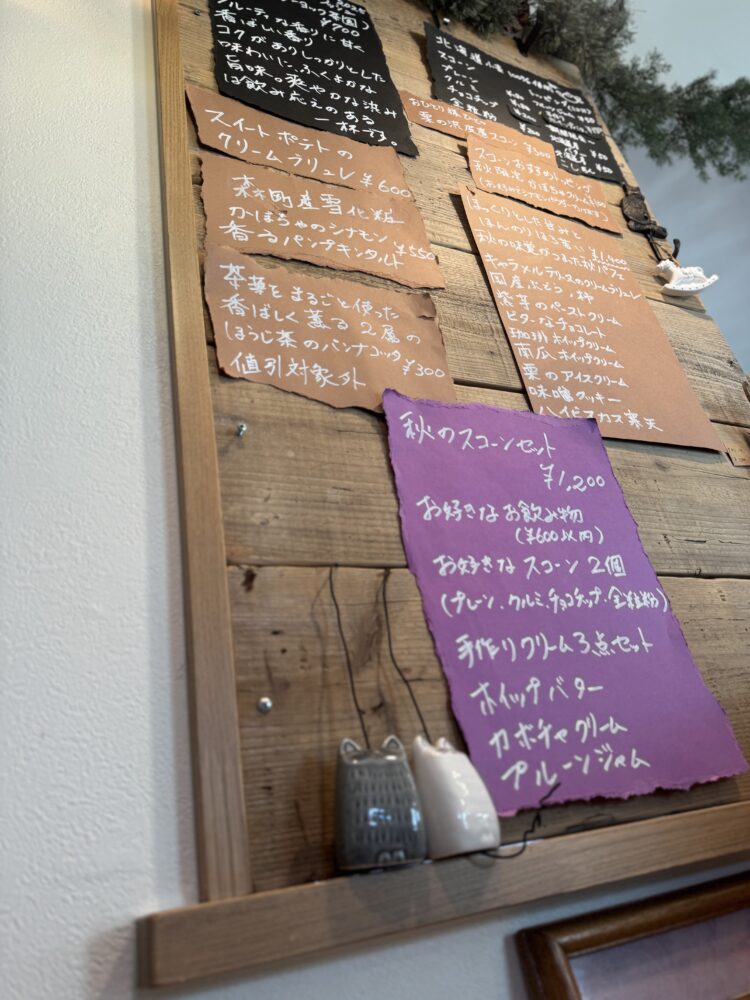 ¥900
フルーティな香りに甘く
香ばしい香り
コクがありしっかりとした
味わいに、ふくよかな
旨味の爽やかな渋み
は飲み応えのある
一杯です。
スイートポテトの
クリームブリュレ ¥600
森町産雪化粧
かぼちゃのシナモン
香るパンプキンタルト ¥550
茶葉をまるごと使った
香ばしく薫る2層の
ほうじ茶のパンナコッタ ¥300
値引対象外
北海道小麦100%使用
スコーン
プレーン
クルミ
チョコチップ
全粒粉
おひとり様ひとつ
栗の渋皮煮スコーン ¥500
スコーンおすすめトッピング
秋限定かぼちゃクリーム
ほっくりとした甘みと
ほんのりほろ苦い ¥1,400
秋の味覚がつまった秋パフェ
キャラメルテリーヌのクリームブリュレ
国産ぶどう1粒
紫芋のペーストクリーム
ビターなチョコレート
珈琲ホイップクリーム
南瓜ホイップクリーム
栗のアイスクリーム
味噌クッキー
ハイビスカス寒天
秋のスコーンセット
¥1,200
お好きなお飲み物
(¥600以内)
お好きなスコーン2個
(プレーン、クルミ、チョコチップ、全粒粉)
手作りクリーム3点セット
ホイップバター
カボチャクリーム
プルーンジャム